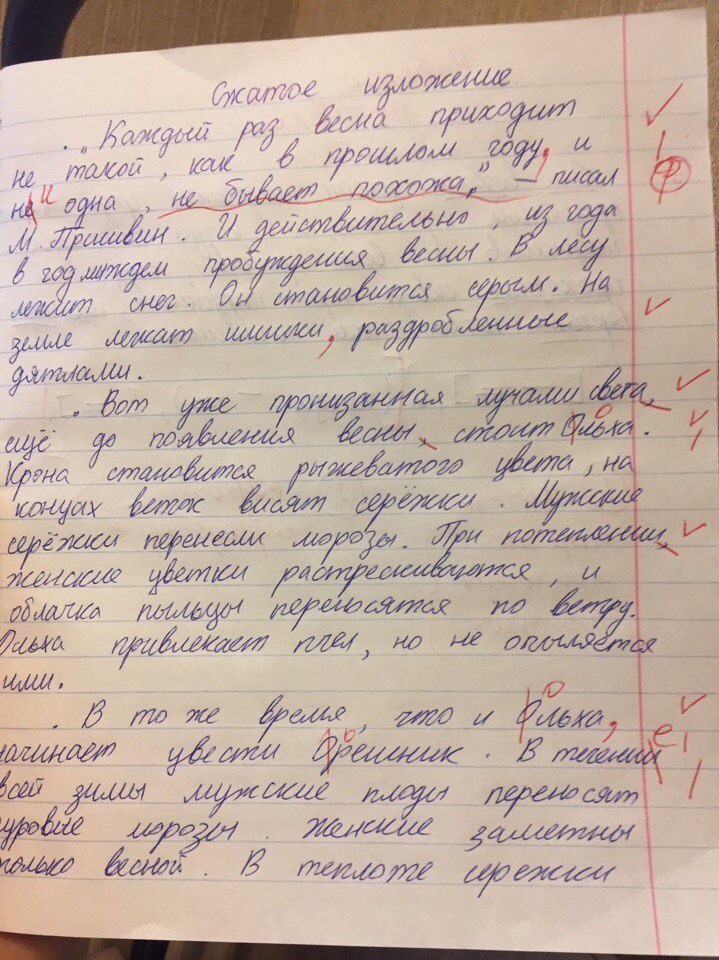 Сжатое изложение
„Каждый раз весна приходит
не такой, как в прошлом году, и
ни одна, не бывает похожа," – писал
М. Пришвин. И действительно, из года
в год мы ждем пробуждения весны. В лесу
лежит снег. Он становится серым. На
земле лежат шишки, раздробленные
дятлами.
Вот уже пронизанная лучами света,
ещё до появления весны, стоит Ольха.
Крона становится рыжеватого цвета, на
концах веток висят серёжки. Мужские
серёжки перенесли морозы. При потеплении,
женские цветки растрескиваются, и
облачка пыльцы переносятся по ветру.
Ольха привлекает пчел, но не опыляется
ими.
В то же время, что и Ольха,
начинает цвести Орешник. В течении
всей зимы мужские плоды переносят
суровые морозы. Женские заметны
только весной. В теплоте сережки